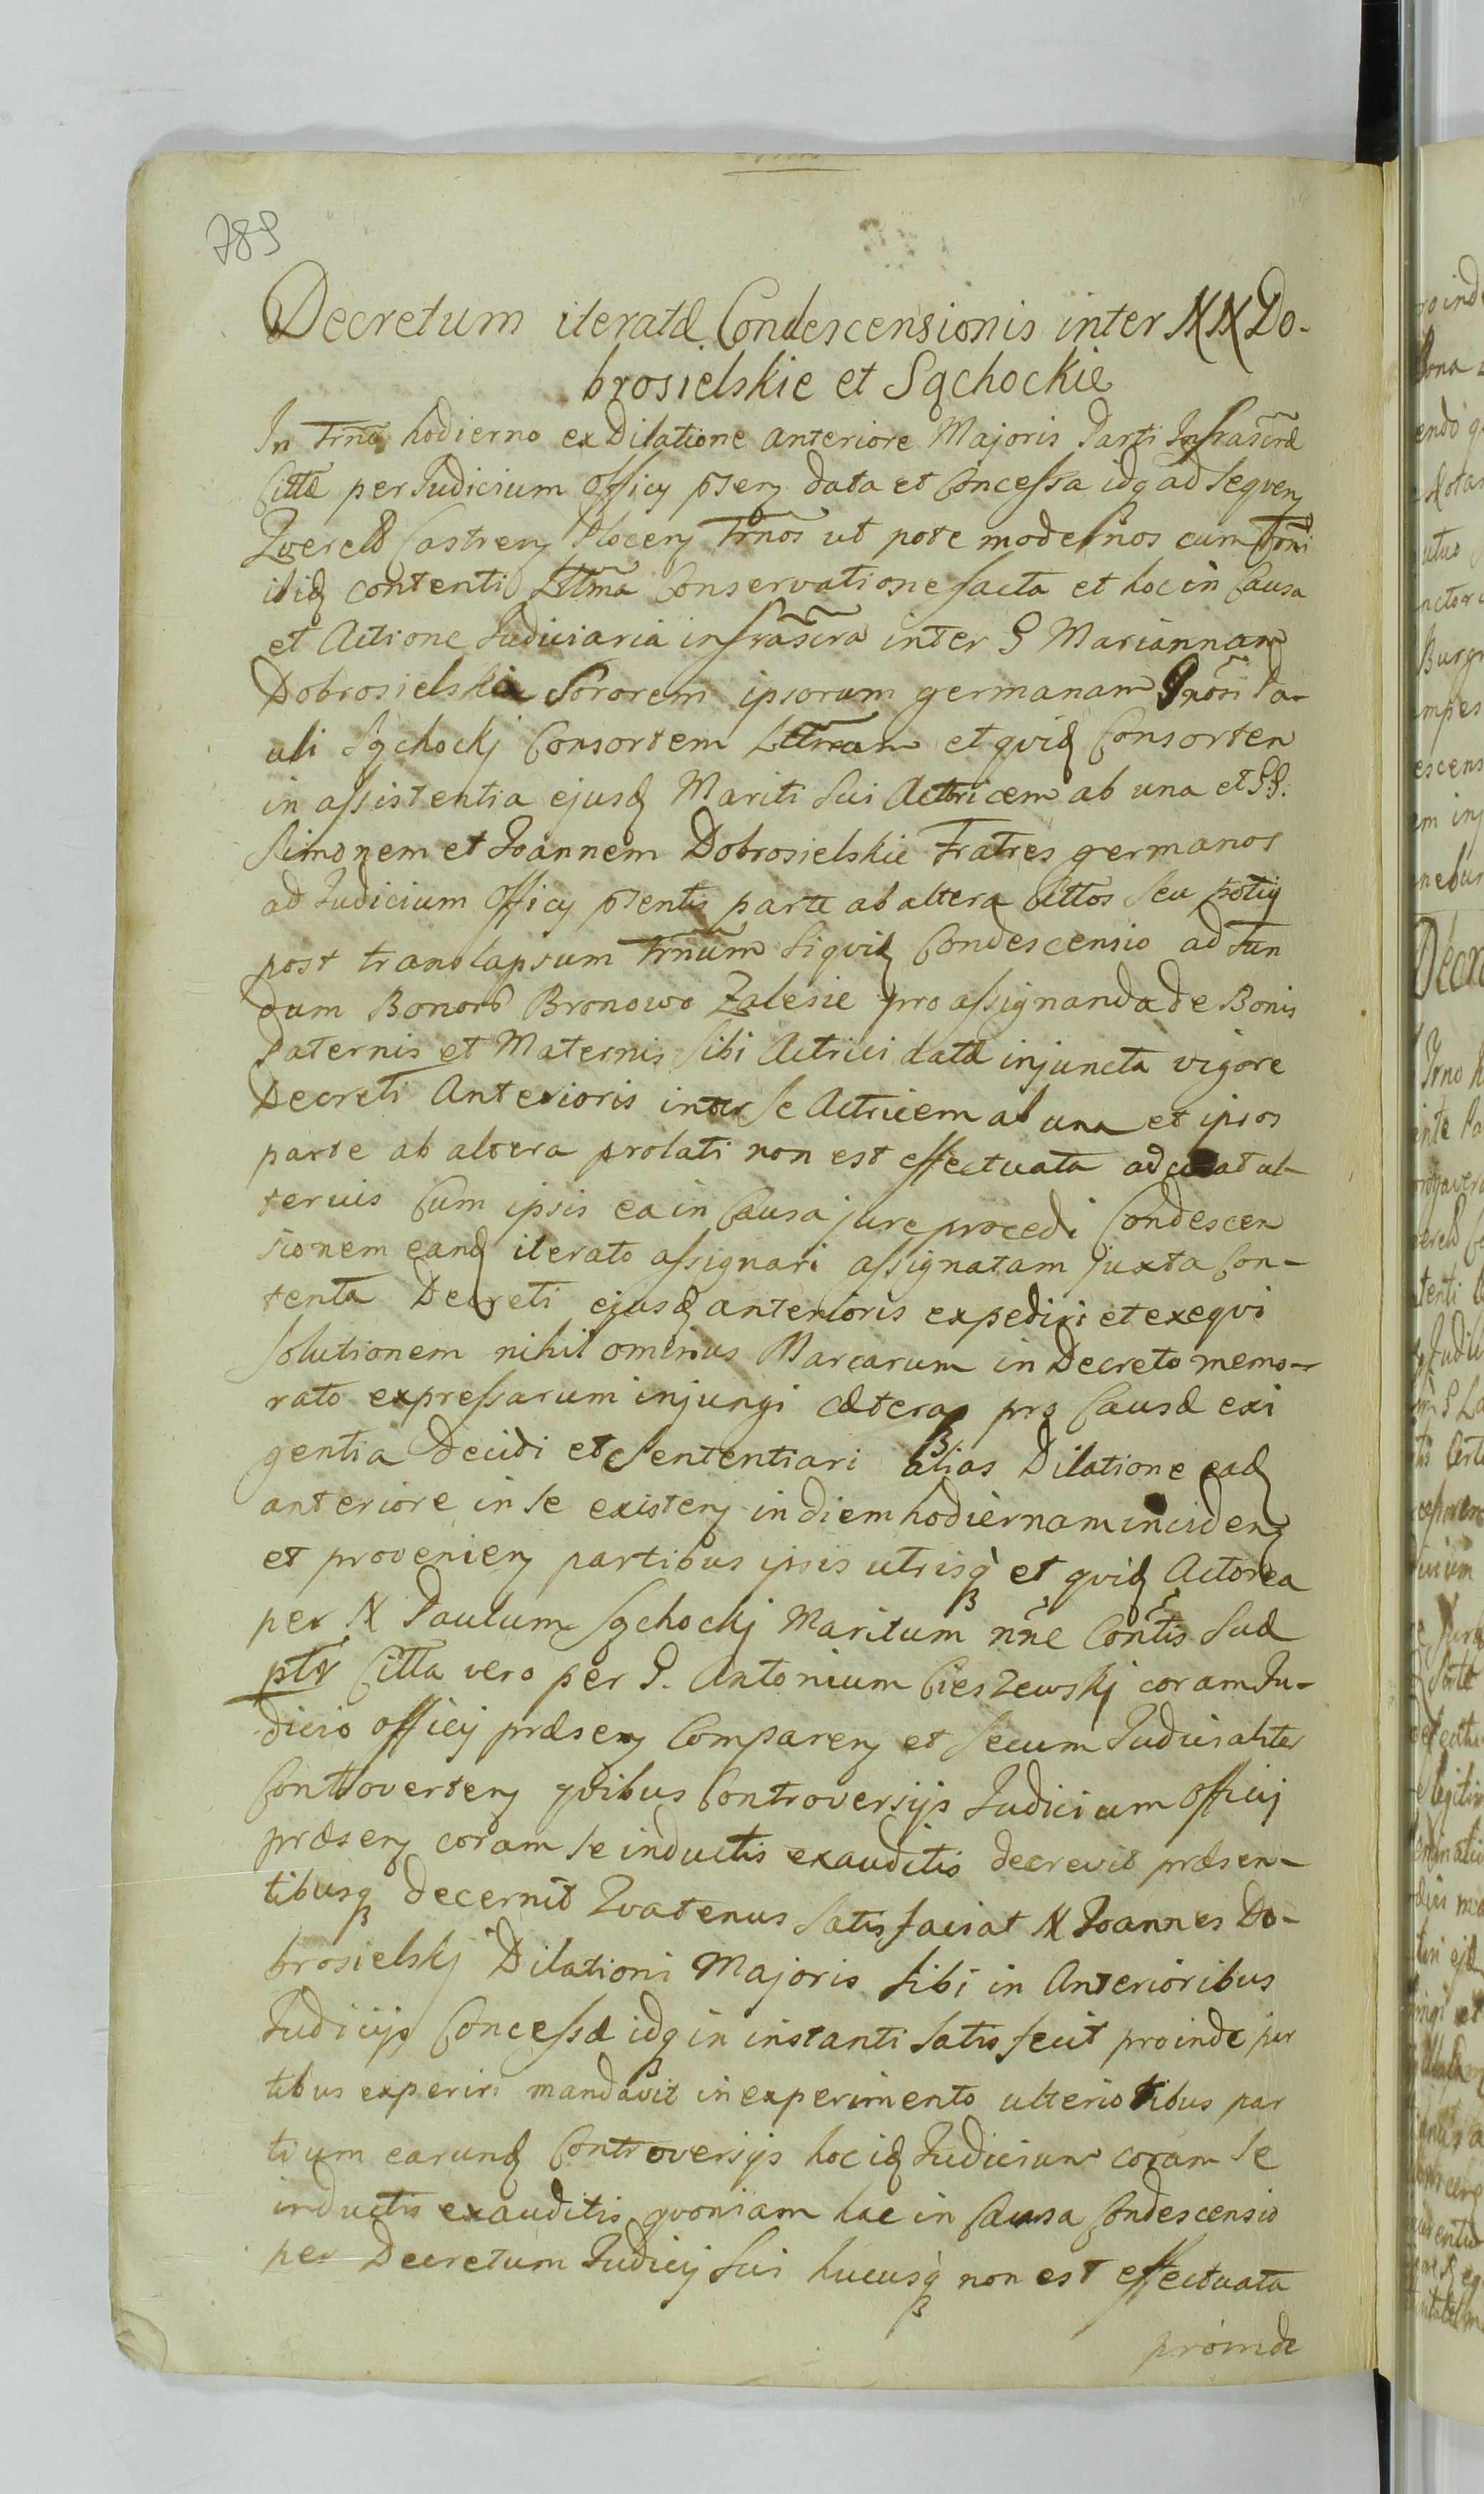 789
Decretum iteratæ Condescensionis inter NN Do-
brosielskie et Sąchockie
In Trnõ hodierno ex Dilatione anteriore Majoris Parti Infrascrã
Cittæ per Judicium Officij pñsenʒ data et Concessa idqʒ ad sequenʒ
Querelʒ Castrenʒ Plocenʒ Trnõs ut pote modernos cum
ibidʒ contenti Lttma Conservatione facta et hoc in Causa
et Actione Judiciaria infrascra inter G Mariannam
Dobrosielska Sororem ipsorum germanam Gnosi Pa-
uli Sąchockj Consortem Lttmam et quidʒ Consortem
in assistentia ejusdʒ Mariti sui Actricem ab una et GG.
Simonem et Joannem Dobrosielskie Fratres germanos
ad Judicium Officij pñsentis parte ab altera Cittos seu potiq
post translapsum Trnũm siquidʒ Condescensio ad Fun
dum Bonorʒ Bronowo Zalesie pro assignanda de Bonis
Paternis et Maternis sibi Actrici datæ injuncta vigore
Decreti Anterioris inter se Actricem ab una et ipsos
parte ab altera prolati non est effectuata ad ul-
terius cum ipsis ea in Causa jure procedi Condescen
sionem eandʒ iterato assignari assignatam juxta Con-
tenta Decreti ejusdʒ anterioris expediri et exequi
Solutionem nihil ominus Marcarum in Decreto memo-
rato expressarum injungi cæteraqʒ pro Causæ exi
gentia Decidi et Sententiari alias Dilatione eadʒ
anteriore in se existenʒ in diem hodiernam incidenʒ
et provenienʒ partibus ipsis utrisqʒ et quidʒ Actorea
per N Paulum Sąchockj Maritum nñe Contis suæ
ptʒ Citta vero per G. Antonium Cieszewskj coram Ju-
dicio officij præsenʒ Comparenʒ et secum Judicialiter
Controvertenʒ quibus Controversijs Judicium Officij
præsenʒ coram se inductis exauditis decrevit præsen-
tibusqʒ decernit Quatenus satisfaciat N Joannes Do-
brosielskj Dilationi Majoris sibi in Anterioribus
Judicijs Concessæ idqʒ in instanti satisfecit proinde par
tibus experiri mandavit in experimento ulterioribus par
tium earundʒ Controversijs hoc idʒ Judicium coram se
inductis exauditis quoniam hac in Causa Condescensio
per Decretum Judicij sui hucusqʒ non est effectuata
proinde